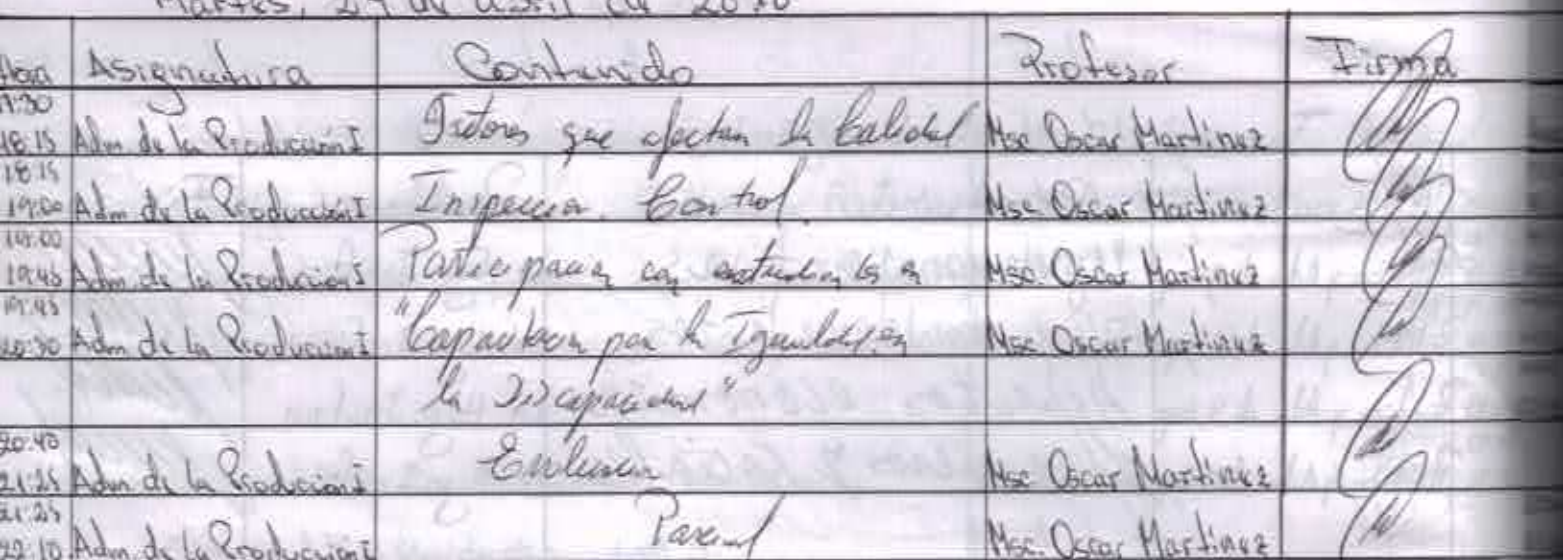 Martes, de abril de
Hora Asignatura Contenido Profesor Firma
17:30
18:15 Adm de la Producción I Factores que afectan la Calidad Msc Oscar Martinez
18:15
19:00 Adm de la Producción I Inspeccion. Control. Msc. Oscar Martinez
19:00
19:45 Adm de la Producción I Participacion con estudiantes en Msc. Oscar Martinez
19:45
20:30 Adm de la Producción I "Capacitacion por la Igualdad en Msc Oscar Martinez
la Discapacidad"
20:40
21:25 Adm de la Producción I Evaluacion Msc Oscar Martinez
21:25
22:10 Adm de la Producción I Parcial Msc. Oscar Martinez